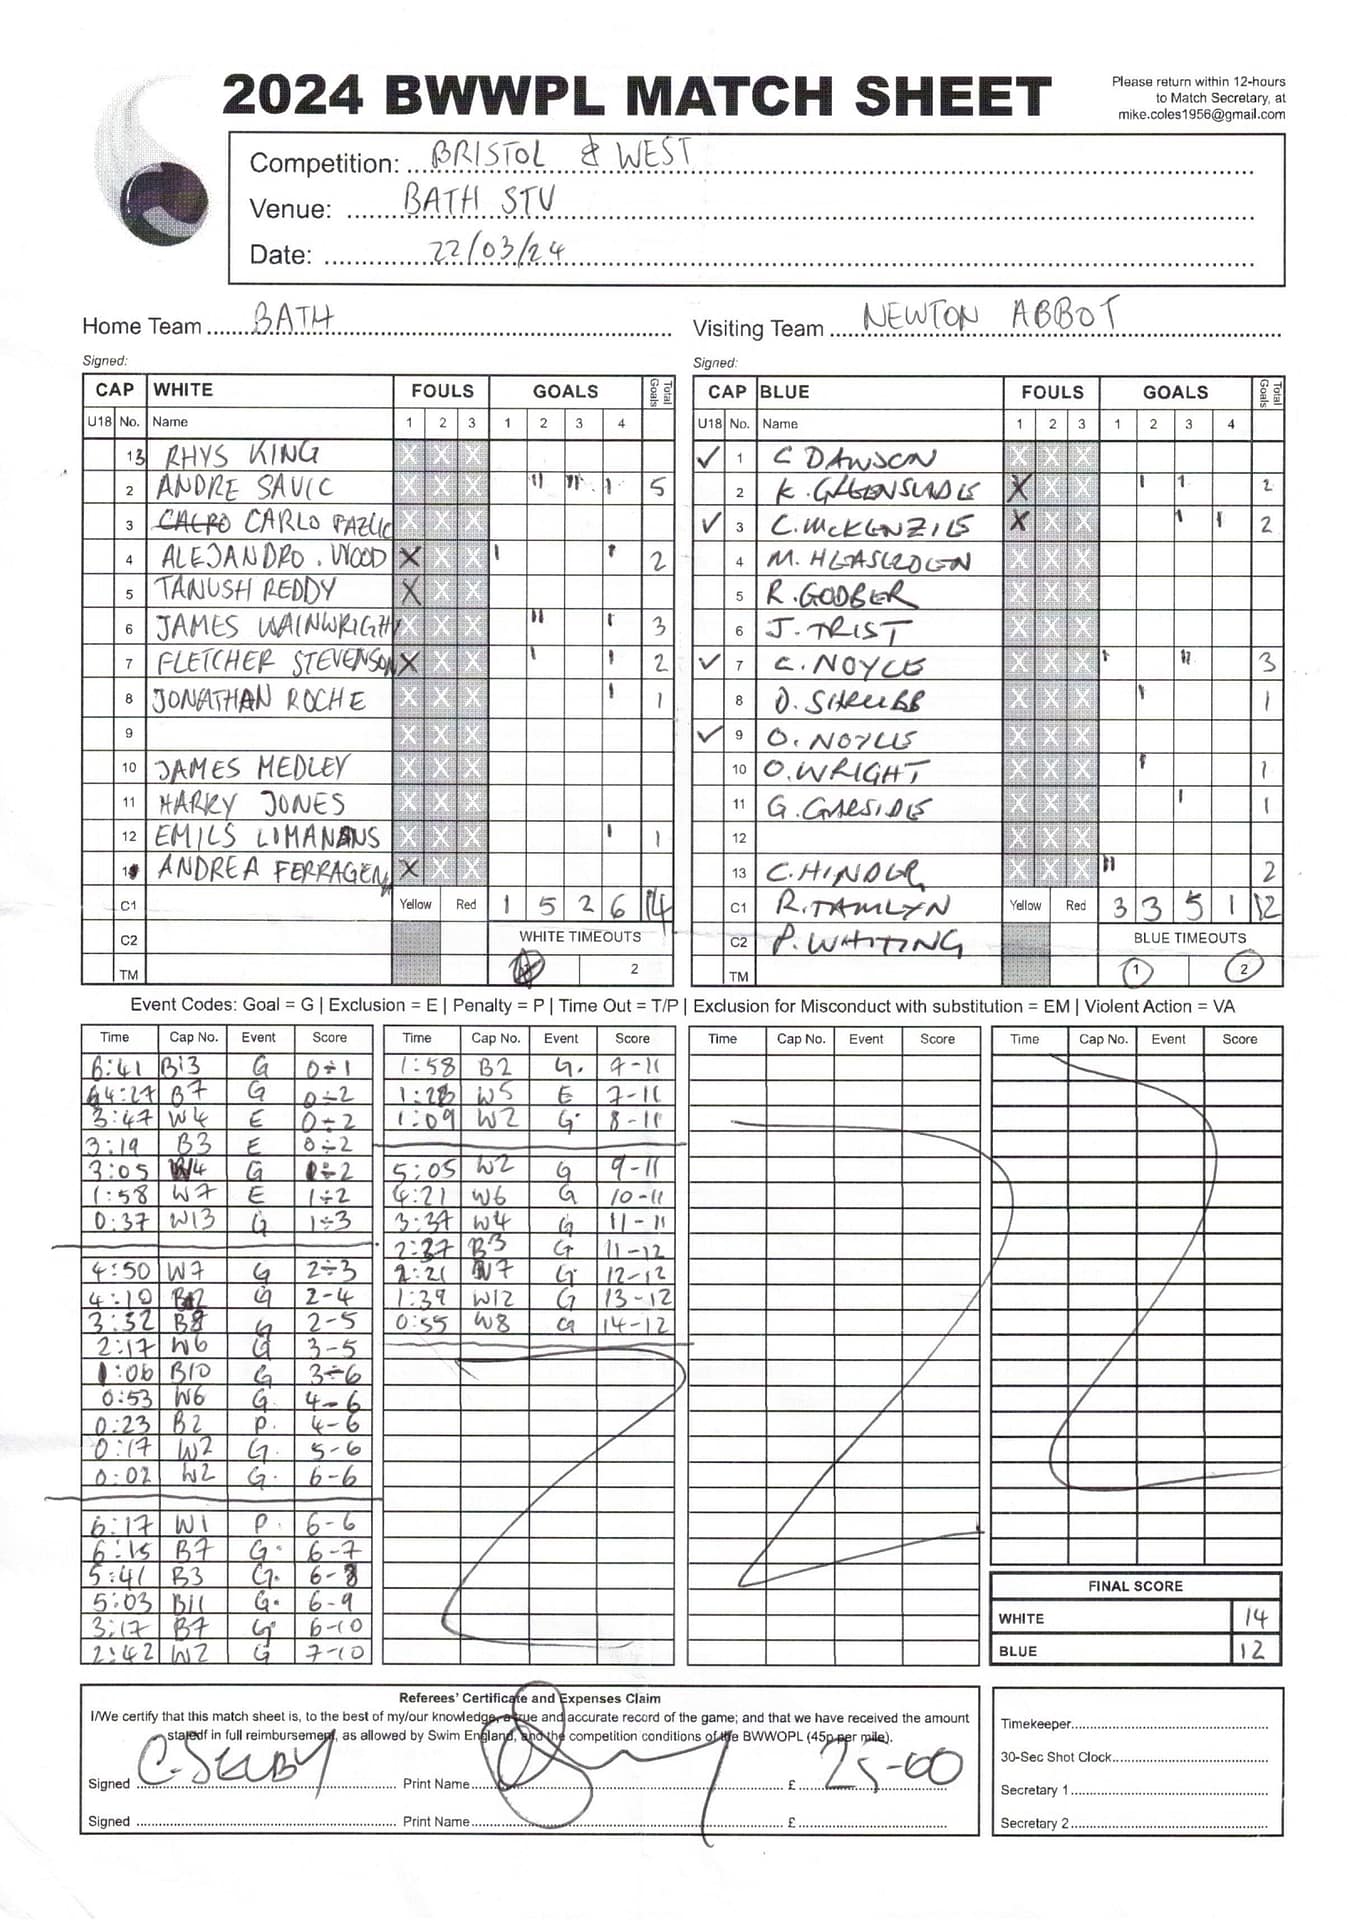 2024 BWWPL MATCH SHEET
Please return within 12-hours
to Match Secretary, at
mike.coles1956@gmail.com
Competition: BRISTOL & WEST
Venue: BATH STV
Date: 22/03/24
Home Team BATH
Visiting Team NEWTON ABBOT
Signed:
Signed:
CAP WHITE FOULS GOALS Total Goals
U18 No. Name 1 2 3 1 2 3 4
13 RHYS KING X X X
2 ANDRE SAVIC X X X 5
3 CARLO PAZLIC X X X
4 ALEJANDRO . WOOD X X X 2
5 TANUSH REDDY X X X
6 JAMES WAINWRIGHT X X X 3
7 FLETCHER STEVENSON X X X 2
8 JONATHAN ROCHE X X X 1
9 X X X
10 JAMES MEDLEY X X X
11 HARRY JONES X X X
12 EMILS LIMANANS X X X 1
1 ANDREA FERRAGEN X X X
C1 Yellow Red 1 5 2 6 14
C2 WHITE TIMEOUTS
TM 1 2
CAP BLUE FOULS GOALS Total Goals
U18 No. Name 1 2 3 1 2 3 4
✓ 1 C DAWSON X X X
2 K. GREENSLADE X X X 2
✓ 3 C. McKENZIE X X X 2
4 M. HEASLDEN X X X
5 R. GODBER X X X
6 J. TRIST X X X
✓ 7 C. NOYCE X X X 3
8 D. SHRUBB X X X 1
✓ 9 O. NOYCE X X X
10 O. WRIGHT X X X 1
11 G. GARSIDE X X X 1
12 X X X
13 C. HINDER X X X 2
C1 R. TAMLYN Yellow Red 3 3 5 1 12
C2 P. WHITING BLUE TIMEOUTS
TM 1 2
Event Codes: Goal = G | Exclusion = E | Penalty = P | Time Out = T/P | Exclusion for Misconduct with substitution = EM | Violent Action = VA
Time Cap No. Event Score
6:41 B13 G 0-1
4:27 B7 G 0-2
3:47 W4 E 0-2
3:19 B3 E 0-2
3:05 W4 G 1-2
1:58 W7 E 1-2
0:37 W13 G 1-3
4:50 W7 G 2-3
4:10 B2 G 2-4
3:32 B8 G 2-5
2:17 W6 G 3-5
1:06 B10 G 3-6
0:53 W6 G 4-6
0:23 B2 P. 4-6
0:17 W2 G. 5-6
0:02 W2 G. 6-6
6:17 W1 P. 6-6
6:15 B7 G. 6-7
5:41 B3 G. 6-8
5:03 B11 G. 6-9
3:17 B7 G 6-10
2:42 W2 G 7-10
Time Cap No. Event Score
1:58 B2 G. 7-11
1:28 W5 E 7-11
1:09 W2 G. 8-11
5:05 W2 G 9-11
4:21 W6 G 10-11
3:37 W4 G 11-11
2:37 B3 G 11-12
2:21 W7 G 12-12
1:39 W12 G 13-12
0:55 W8 G 14-12
Time Cap No. Event Score
Time Cap No. Event Score
FINAL SCORE
WHITE 14
BLUE 12
Referees' Certificate and Expenses Claim
I/We certify that this match sheet is, to the best of my/our knowledge, a true and accurate record of the game; and that we have received the amount
statedf in full reimbursement, as allowed by Swim England, and the competition conditions of the BWWOPL (45p per mile).
Signed C. SELBY Print Name £ 25-00
Signed Print Name £
Timekeeper
30-Sec Shot Clock
Secretary 1
Secretary 2